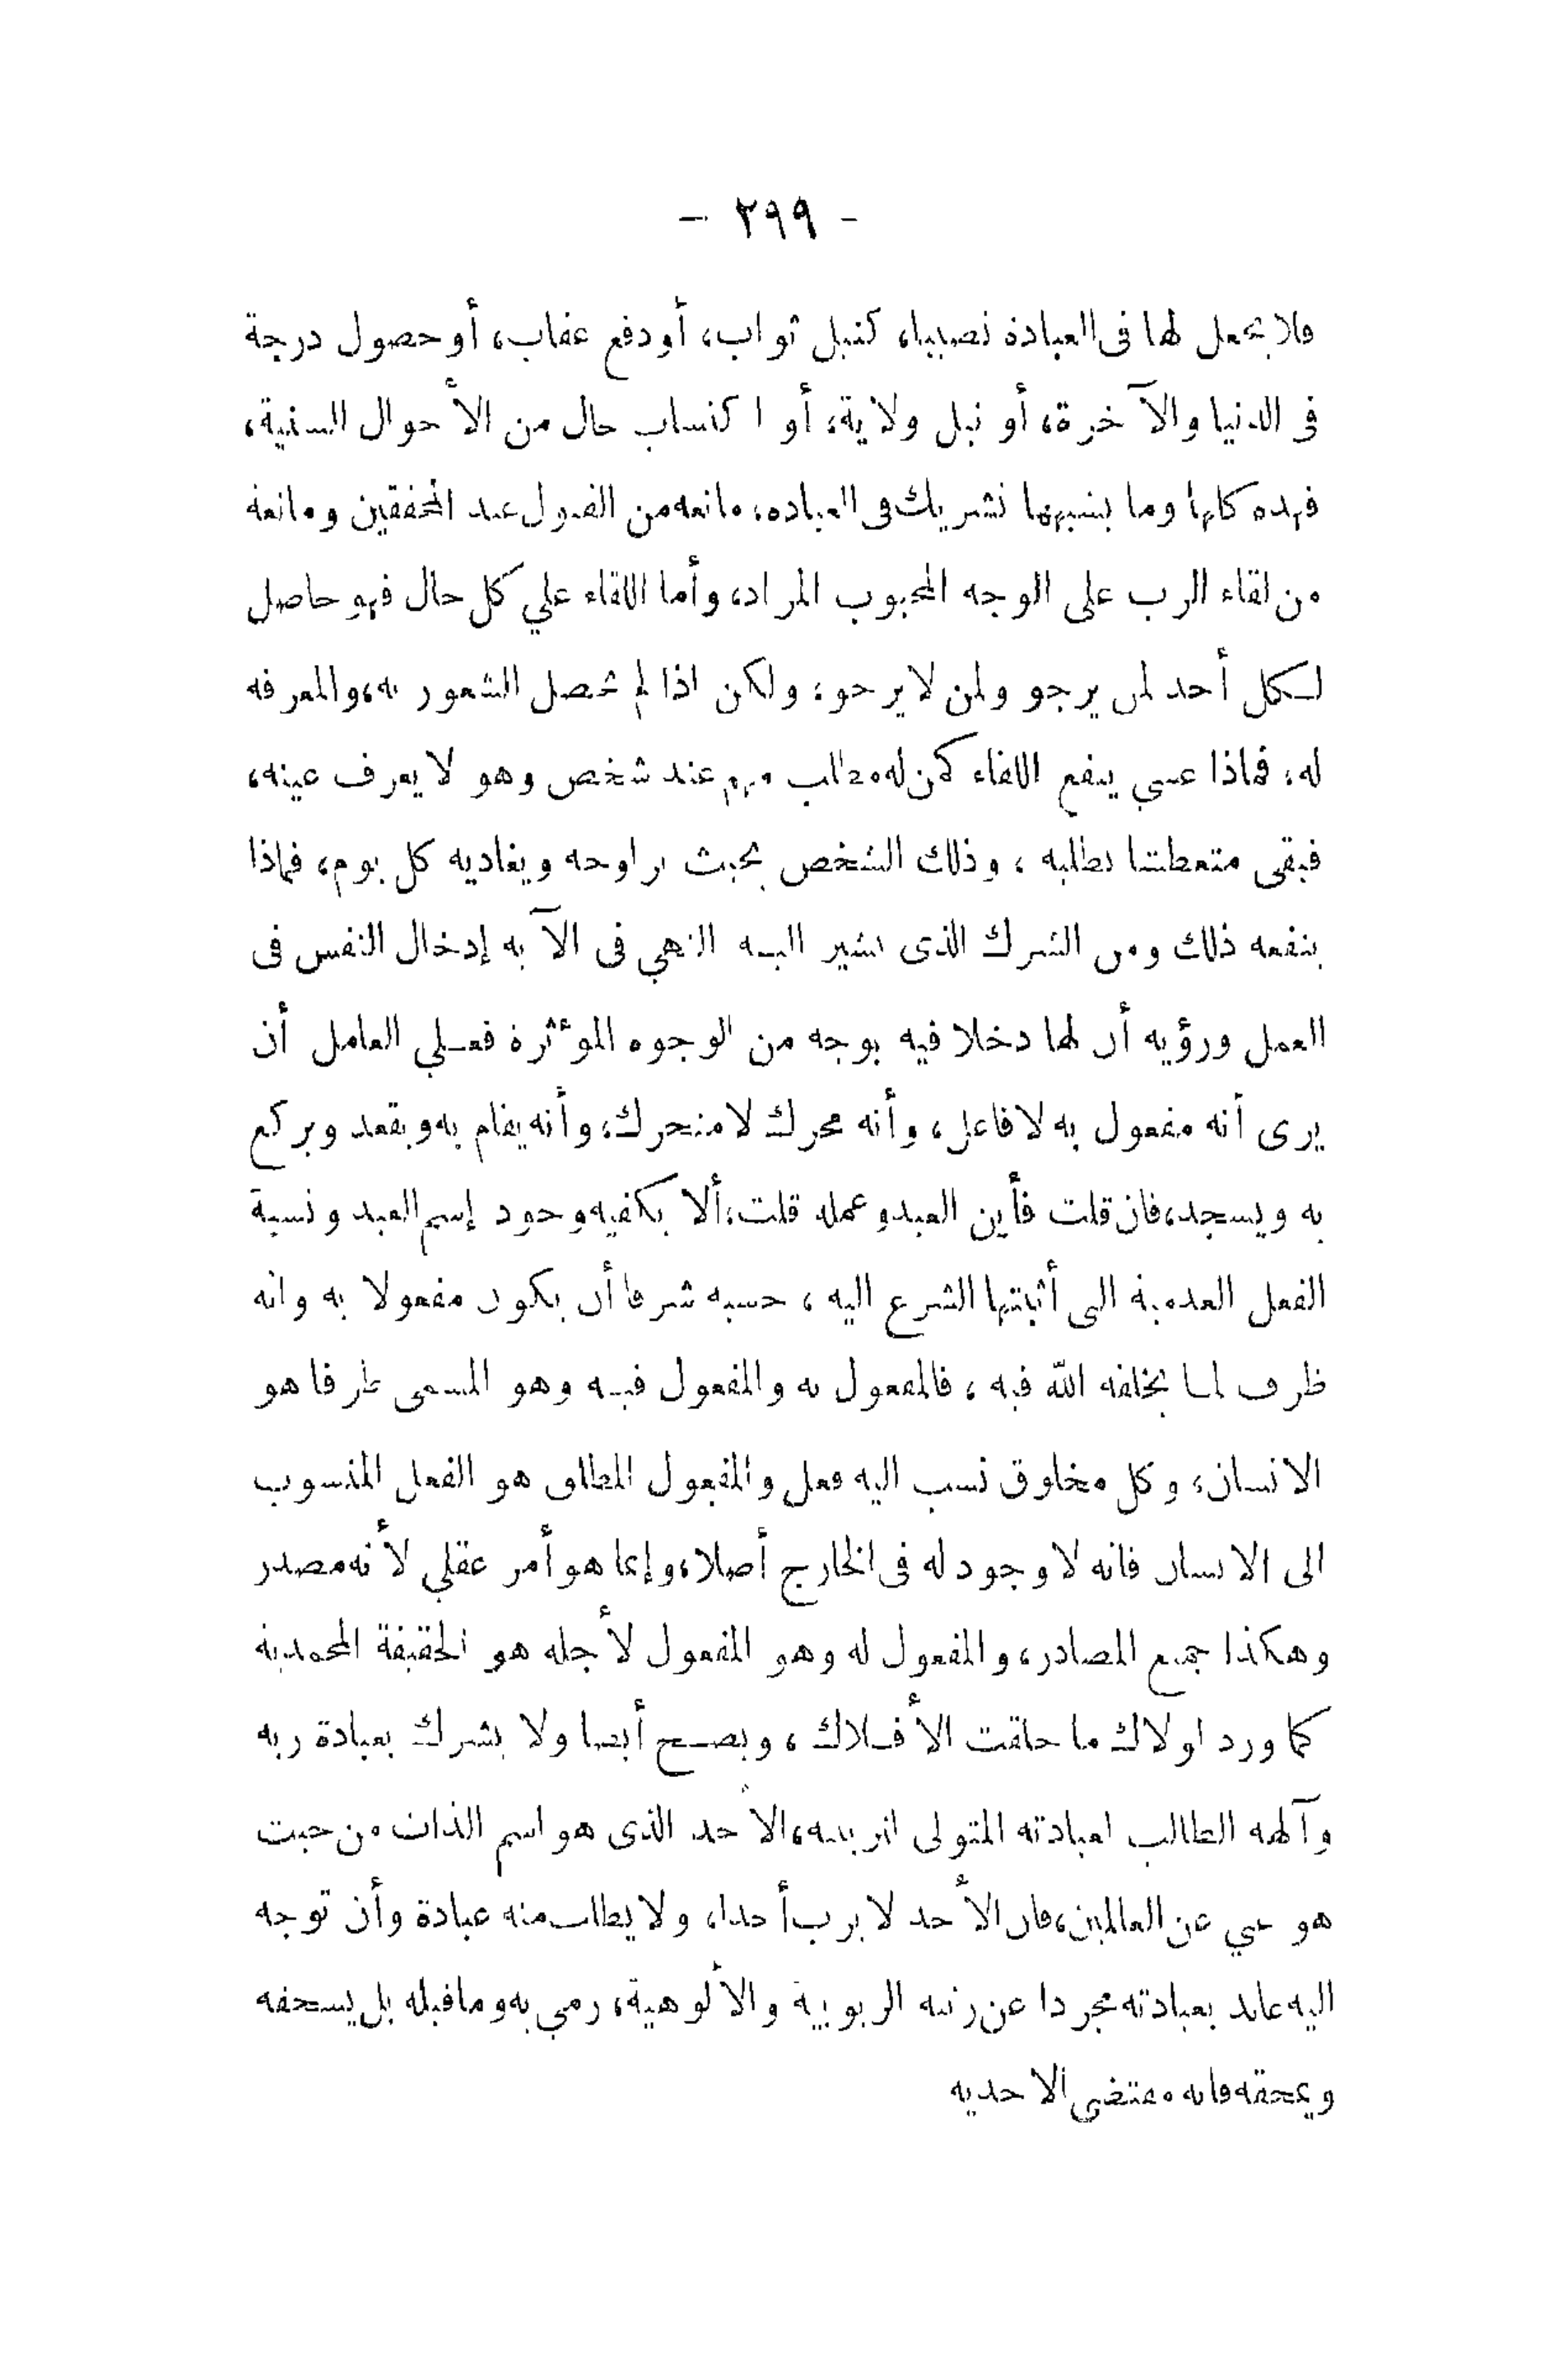 - ٢٩٩ -
فلا يجعل لها فى العبادة نصيبا، كنيل ثواب، أو دفع عقاب، أو حصول درجة
فى الدنيا والآخرة، أو نيل ولاية، أو اكتساب حال من الأحوال السنية،
فهده كلها وما يشبهها تشريك فى العباده، مانعه من القبول عند المحققين ومانعة
من لقاء الرب على الوجه المحبوب المراد، وأما اللقاء علي كل حال فهو حاصل
لكل أحد لمن يرجو ولمن لا يرجو، ولكن اذا لم يحصل الشعور به، والمعرفه
له، فماذا عسي ينفع اللقاء كمن له مطلب مهم عند شخص وهو لا يعرف عينه،
فبقى متعطشا لطلبه ، وذلك الشخص بحيث يراوحه ويغاديه كل يوم، فماذا
ينفعه ذلك ومن الشرك الذى تشير اليه النهي فى الآيه إدخال النفس فى
العمل ورؤيه أن لها دخلا فيه بوجه من الوجوه المؤثرة فعلي العامل أن
يرى أنه مفعول به لا فاعل، وأنه محرك لا متحرك، وأنه يقام به ويقعد ويركع
به ويسجد، فان قلت فأين العبد وعمله قلت، ألا يكفيه وجود إسم العبد ونسبة
الفعل العدمية التى أثبتها الشرع اليه ، حسبه شرفا أن يكون مفعولا به وانه
ظرف لما يخلقه الله فيه ، فالمفعول به والمفعول فيه وهو المسمى ظرفا هو
الانسان، وكل مخلوق نسب اليه فعل والمفعول المطلق هو الفعل المنسوب
الى الانسان فانه لا وجود له فى الخارج أصلا، وإنما هو أمر عقلي لأنه مصدر
وهكذا جميع المصادر، والمفعول له وهو المفعول لأجله هو الحقيقة المحمدية
كما ورد لولاك ما خلقت الأفلاك ، ويصح أيضا ولا يشرك بعبادة ربه
وآلهه الطالب لعبادته المتولى لتربيته، الأحد الذى هو اسم الذات من حيت
هو غني عن العالمين، فان الأحد لا يرب أحدا، ولا يطلب منه عبادة وأن توجه
اليه عابد بعبادته مجردا عن رتبه الربوبية والألوهية، رمي به وما قبله بل يسحقه
ويمحقه فانه مقتضى الاحديه